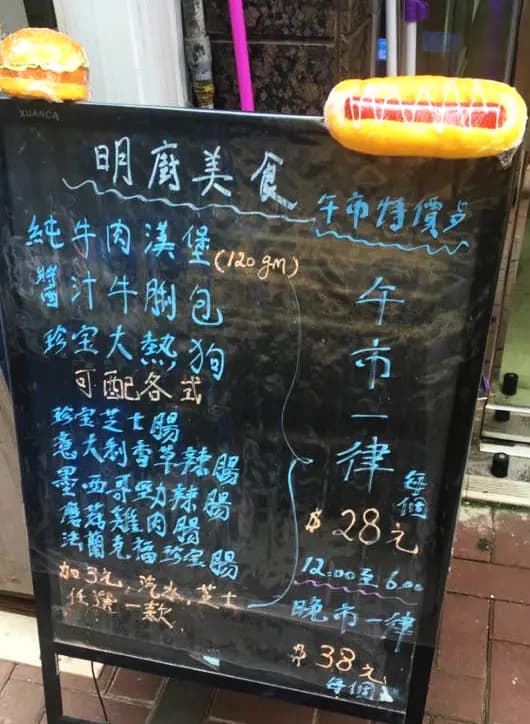 XUANCA
明廚美食
午市特價
純牛肉漢堡(120gm)
醬汁牛脷包
珍宝大熱狗
可配各式
珍宝芝士腸
意大利香草辣腸
墨西哥勁辣腸
磨菇雞肉腸
法蘭克福珍宝腸
加3元,汽水,芝士
任選一款
午市一律
每個
$28元
12:00至6:00
晚市一律
$38元
每個